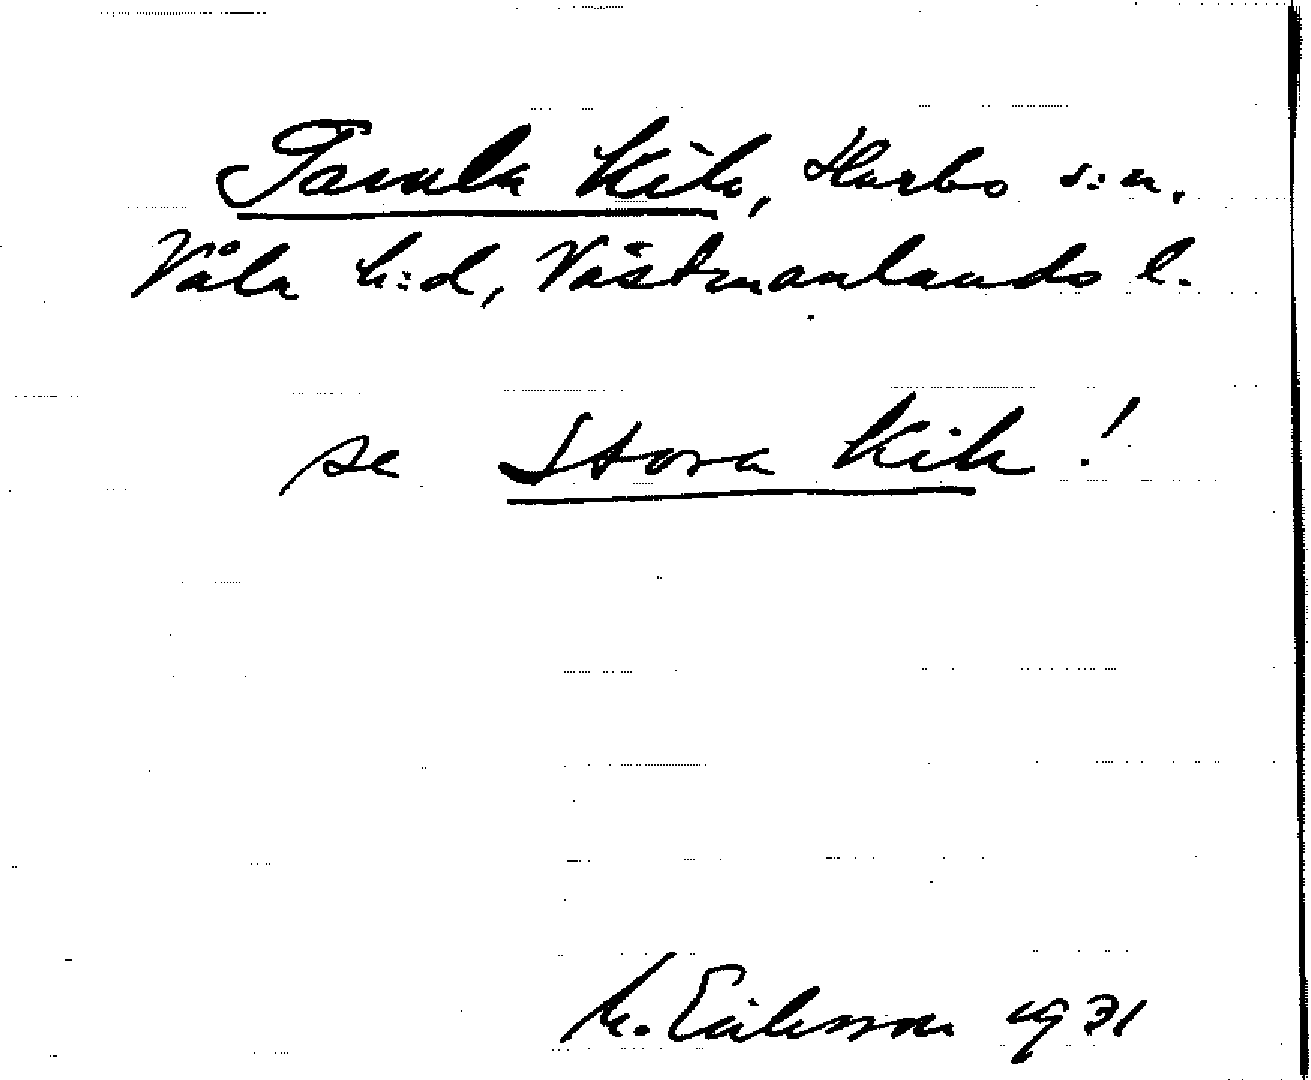 Gamla Kik, Harbo s:n,
Våla h:d, Västmanlands l.
se Stora Kik!
M. Eriksson 1931